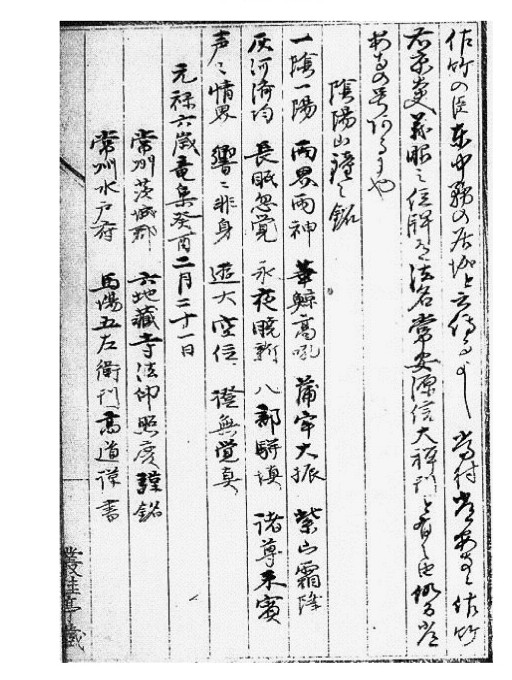 佐竹の臣東中務の居城と云傳るよし 當村常安寺ニ佐竹
右京大夫義昭之位牌有法名常安源信大禅門と有之由
あるの号
陰陽山鐘之銘
一陰一陽 両界両神 華鯨高吼 蒲牢大振 紫山霜降
灰河流均 長眠忽覚 永夜暁新 八部駢填 諸尊来賓
声々情界 響々非身 遊大空位 證無覚真
元禄六歳竜集癸酉二月二十一日
常州茨城郡 六地蔵寺法印照廣謹銘
常州水戸府 馬場五左衛門高道謹書
叢桂亭蔵